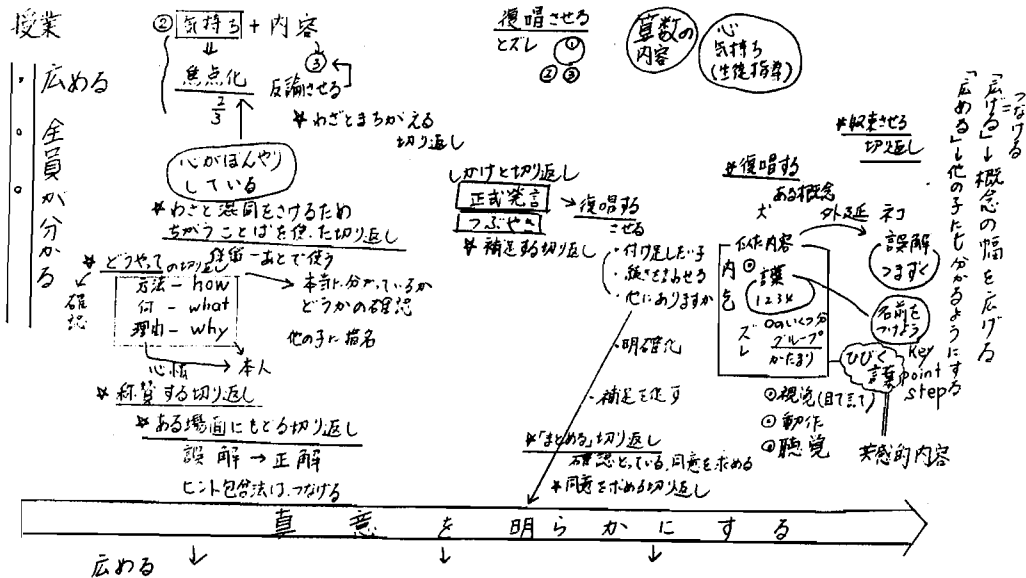 授業
広める
全員が分かる
② 気持ち + 内容
③
焦点化
2/3
反論させる
☆わざとまちがえる
切り返し
心がぼんやり
している
☆わざと混同をさけるため
ちがうことばを使った切り返し
☆どうやっての切り返し
あとで使う
確認
方法 - how
何 - what
理由 - why
本当に分かっているか
どうかの確認
他の子に指名
本人
☆称賛する切り返し
☆ある場面にもどる切り返し
誤解→正解
ヒント包含法は、つなげる
復唱させる
とズレ
①
② ③
算数の
内容
心
気持ち
(生徒指導)
しかけと切り返し
正式発言
つぶやき
→復唱する
させる
☆補足する切り返し
・付け足したい子
・続きを言わせる
・他にありますか
・明確化
・補足を促す
☆「まとめる」切り返し
確認とっている、同意を求める
☆同意を求める切り返し
☆復唱する
ある概念
犬
外延
ネコ
内包
ズレ
言葉
1234
0のいくつ分
グループ
かたまり
誤解
つまずく
名前を
つけよう
ひびく
言葉
key
point
step
共感的内容
⊙動作
⊙聴覚
☆収束させる
切り返し
つなげる
=
「広げる」→概念の幅を広げる
「広める」→他の子にも分かるようにする
真意を明らかにする
広める